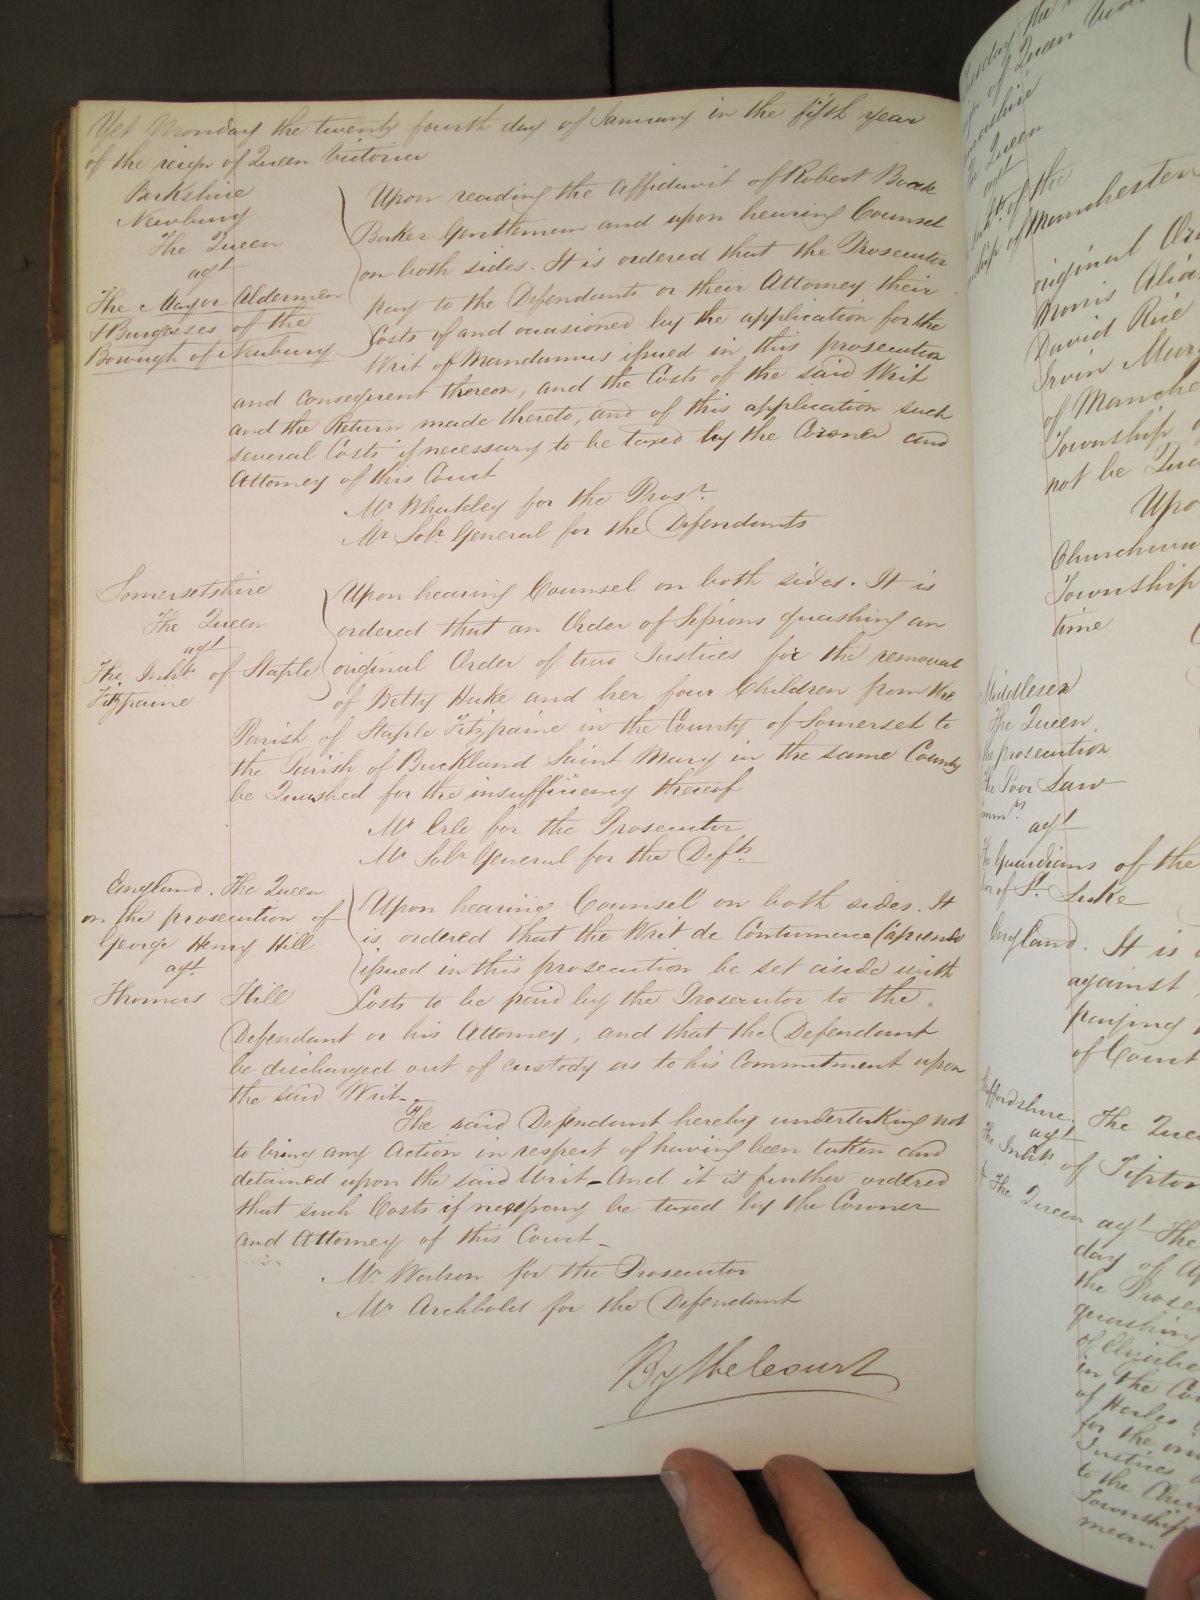 Yet Monday the twenty fourth day of January in the fifth year
of the reign of Queen Victoria
Berkshire
Newbury
The Queen
agt
The Mayor Aldermen
& Burgesses of the
Borough of Newbury
Upon reading the Affidavit of Robert
Baker Gentleman and upon hearing Counsel
on both sides. It is ordered that the Prosecutor
pay to the Defendants or their Attorney their
Costs of and occasioned by the application for the
Writ of Mandamus issued in this prosecution
and consequent thereon, and the Costs of the said Writ
and the Return made thereto, and of this application such
several Costs if necessary to be taxed by the Coroner and
Attorney of this Court
Mr Whateley for the Prosr.
Mr Solr. General for the Defendants
Somersetshire
The Queen
agt
The Inhts. of Staple
Fitzpaine
Upon hearing Counsel on both sides. It is
ordered that an Order of Sessions quashing an
original Order of two Justices for the removal
of Betty Huke and her four Children from the
Parish of Staple Fitzpaine in the County of Somerset to
the Parish of Buckland Saint Mary in the same County
be Quashed for the insufficiency thereof
Mr Erle for the Prosecutor
Mr Solr General for the Defts.
England. The Queen
on the prosecution of
George Henry Hill
agt.
Thomas Hill
Upon hearing Counsel on both sides. It
is ordered that the Writ de Contumace Capiendo
issued in this prosecution be set aside with
Costs to be paid by the Prosecutor to the
Defendant or his Attorney, and that the Defendant
be discharged out of custody as to his Commitment upon
the said Writ.
The said Defendant hereby undertaking not
to bring any Action in respect of having been taken and
detained upon the said Writ - And it is further ordered
that such Costs if necessary be taxed by the Coroner
and Attorney of this Court
Mr. Watson for the Prosecutor
Mr Archbold for the Defendant
By the Court
of Queen
The Queen
agt
of the
of Manchester
original
Morris
David Rice
Irvin
of
Township
not be
Churchwa
Township
time
Middlesex
The Queen
the prosecution
The Poor Law
agt
Guardians of the
of St. Luke
England. It is
against
paying
of Court
The
agt
The Inhts. of Tipton
The Queen agt The
day of
the
quashing
in the
of
for the
Justices
to the
Township
mean